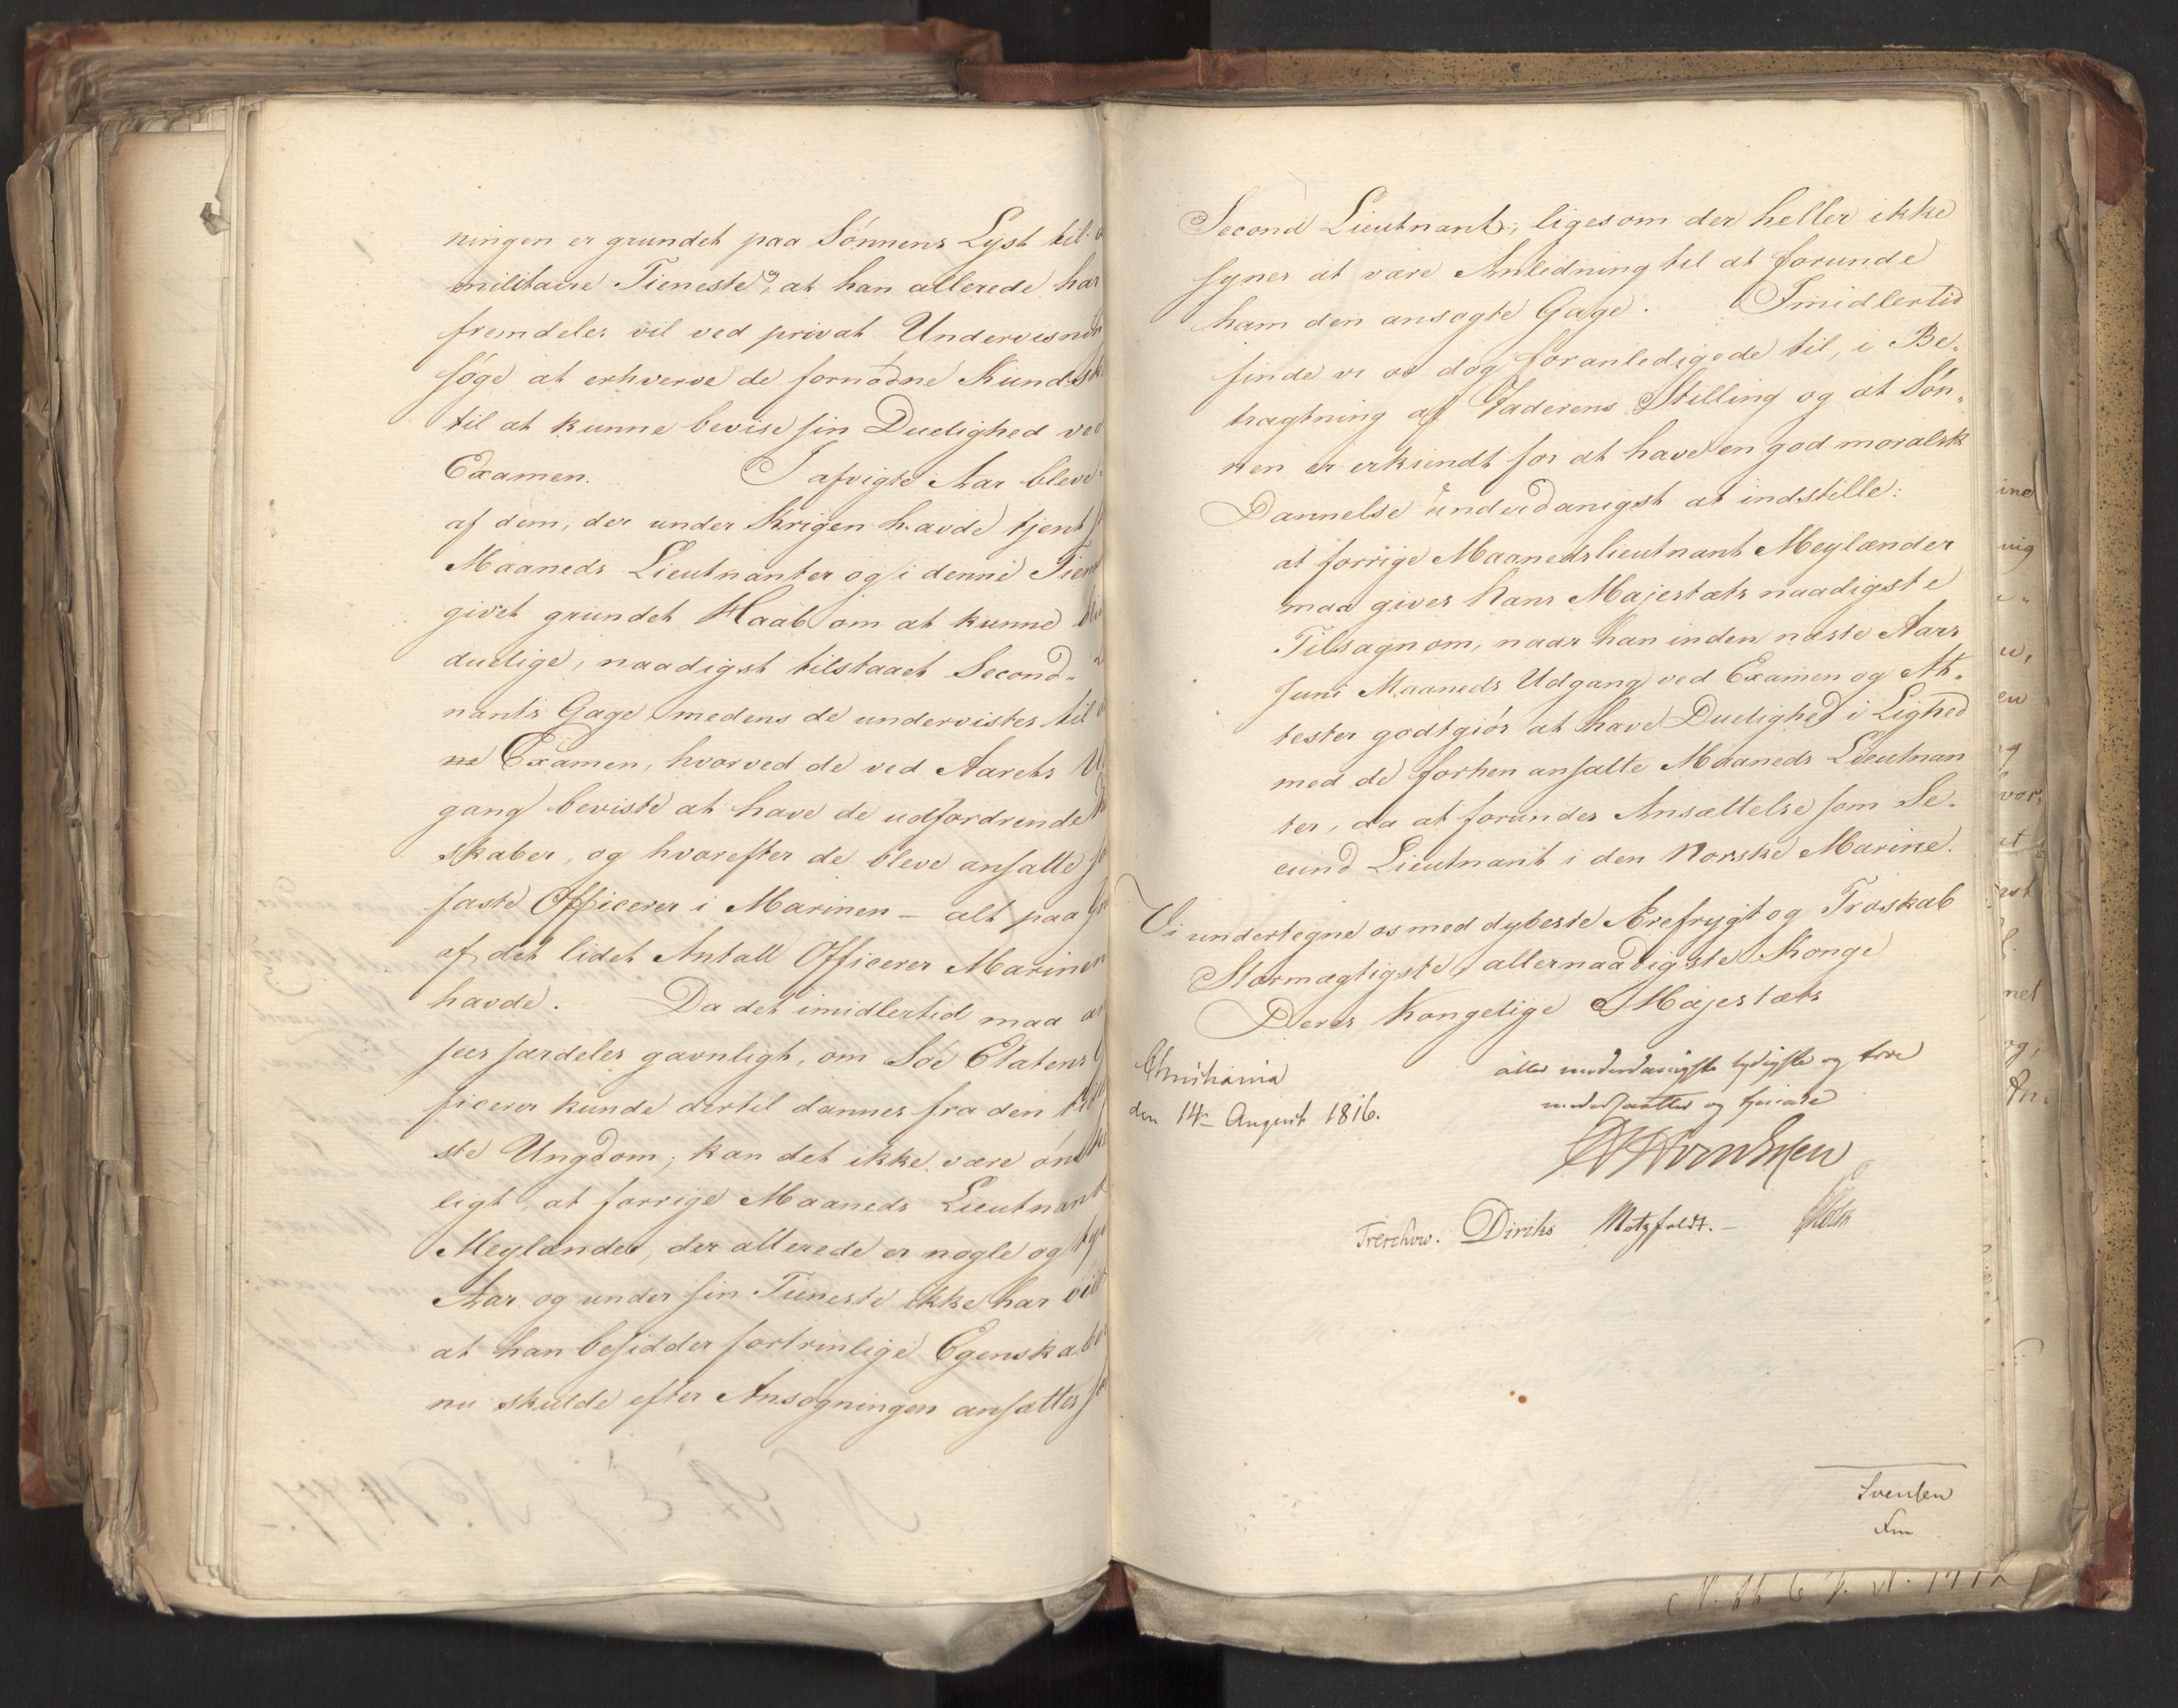 ningen er grundet paa Sønnens Lyst til
militaire Tieneste, at han allerede har
fremdeles vil ved privat Undervisni
søge at erhverve de fornødne Kundsk
til at kunne bevise sin Duelighed ved
Examen. I afvigte Aar bleve
af dem, der under Krigen havde tjent
Maaneds Lieutnanter og i denne Tien
givet grundet Haab om at kunne bliv
duelige, naadigst tilstaaet Second-
nants Gage medens de undervistes til
ne Examen, hvorved de ved Aarets U
gang beviste at have de udfordrende
skaber, og hvorefter de bleve ansatte
faste Officerer i Marinen – alt paa
af det lidet Antall Officerer Marinen
havde. Da det imidlertid maa an
sees særdeles gavnligt, om Søe Etatens
ficerer kunde dertil dannes fra den
ste Ungdom; kan det ikke være ønsk
ligt, at forrige Maaneds Lieutnant
Meylænder, der allerede er nogle og tyve
Aar og under sin Tieneste ikke har viist
at han besidder fortrinlige Egenskaber
nu skulde efter Ansøgningen ansættes
Second Lieutnant; ligesom der heller ikke
synes at være Anledning til at forunde
ham den ansøgte Gage. Imidlertid
finde vi os dog foranledigede til, i Be-
tragtning af Faderens Stilling og at Søn-
nen er erkiendt for at have en god moralsk
Dannelse underdanigst at indstille:
at forrige Maanedslieutnant Meylænder
maa gives Hans Majestæts naadigste
Tilsagn om, naar han inden næste Aars
Juni Maaneds Udgang ved Examen og At-
tester godtgiør at have Duelighed i Lighed
med de forhen ansatte Maaneds Lieutnan
ter, da at forundes Ansættelse som Se-
cund Lieutnant i den Norske Marine.
Vi undertegne os med dybeste Ærefrygt og Troskab
Stormægtigste, allernaadigste Konge
Deres Kongelige Majestæts
Christiania
den 14 August 1816.
aller underdanigste lydigste og troe
undersaatter og tjenere
Treschow. Diriks Motzfeldt.–
Svensen